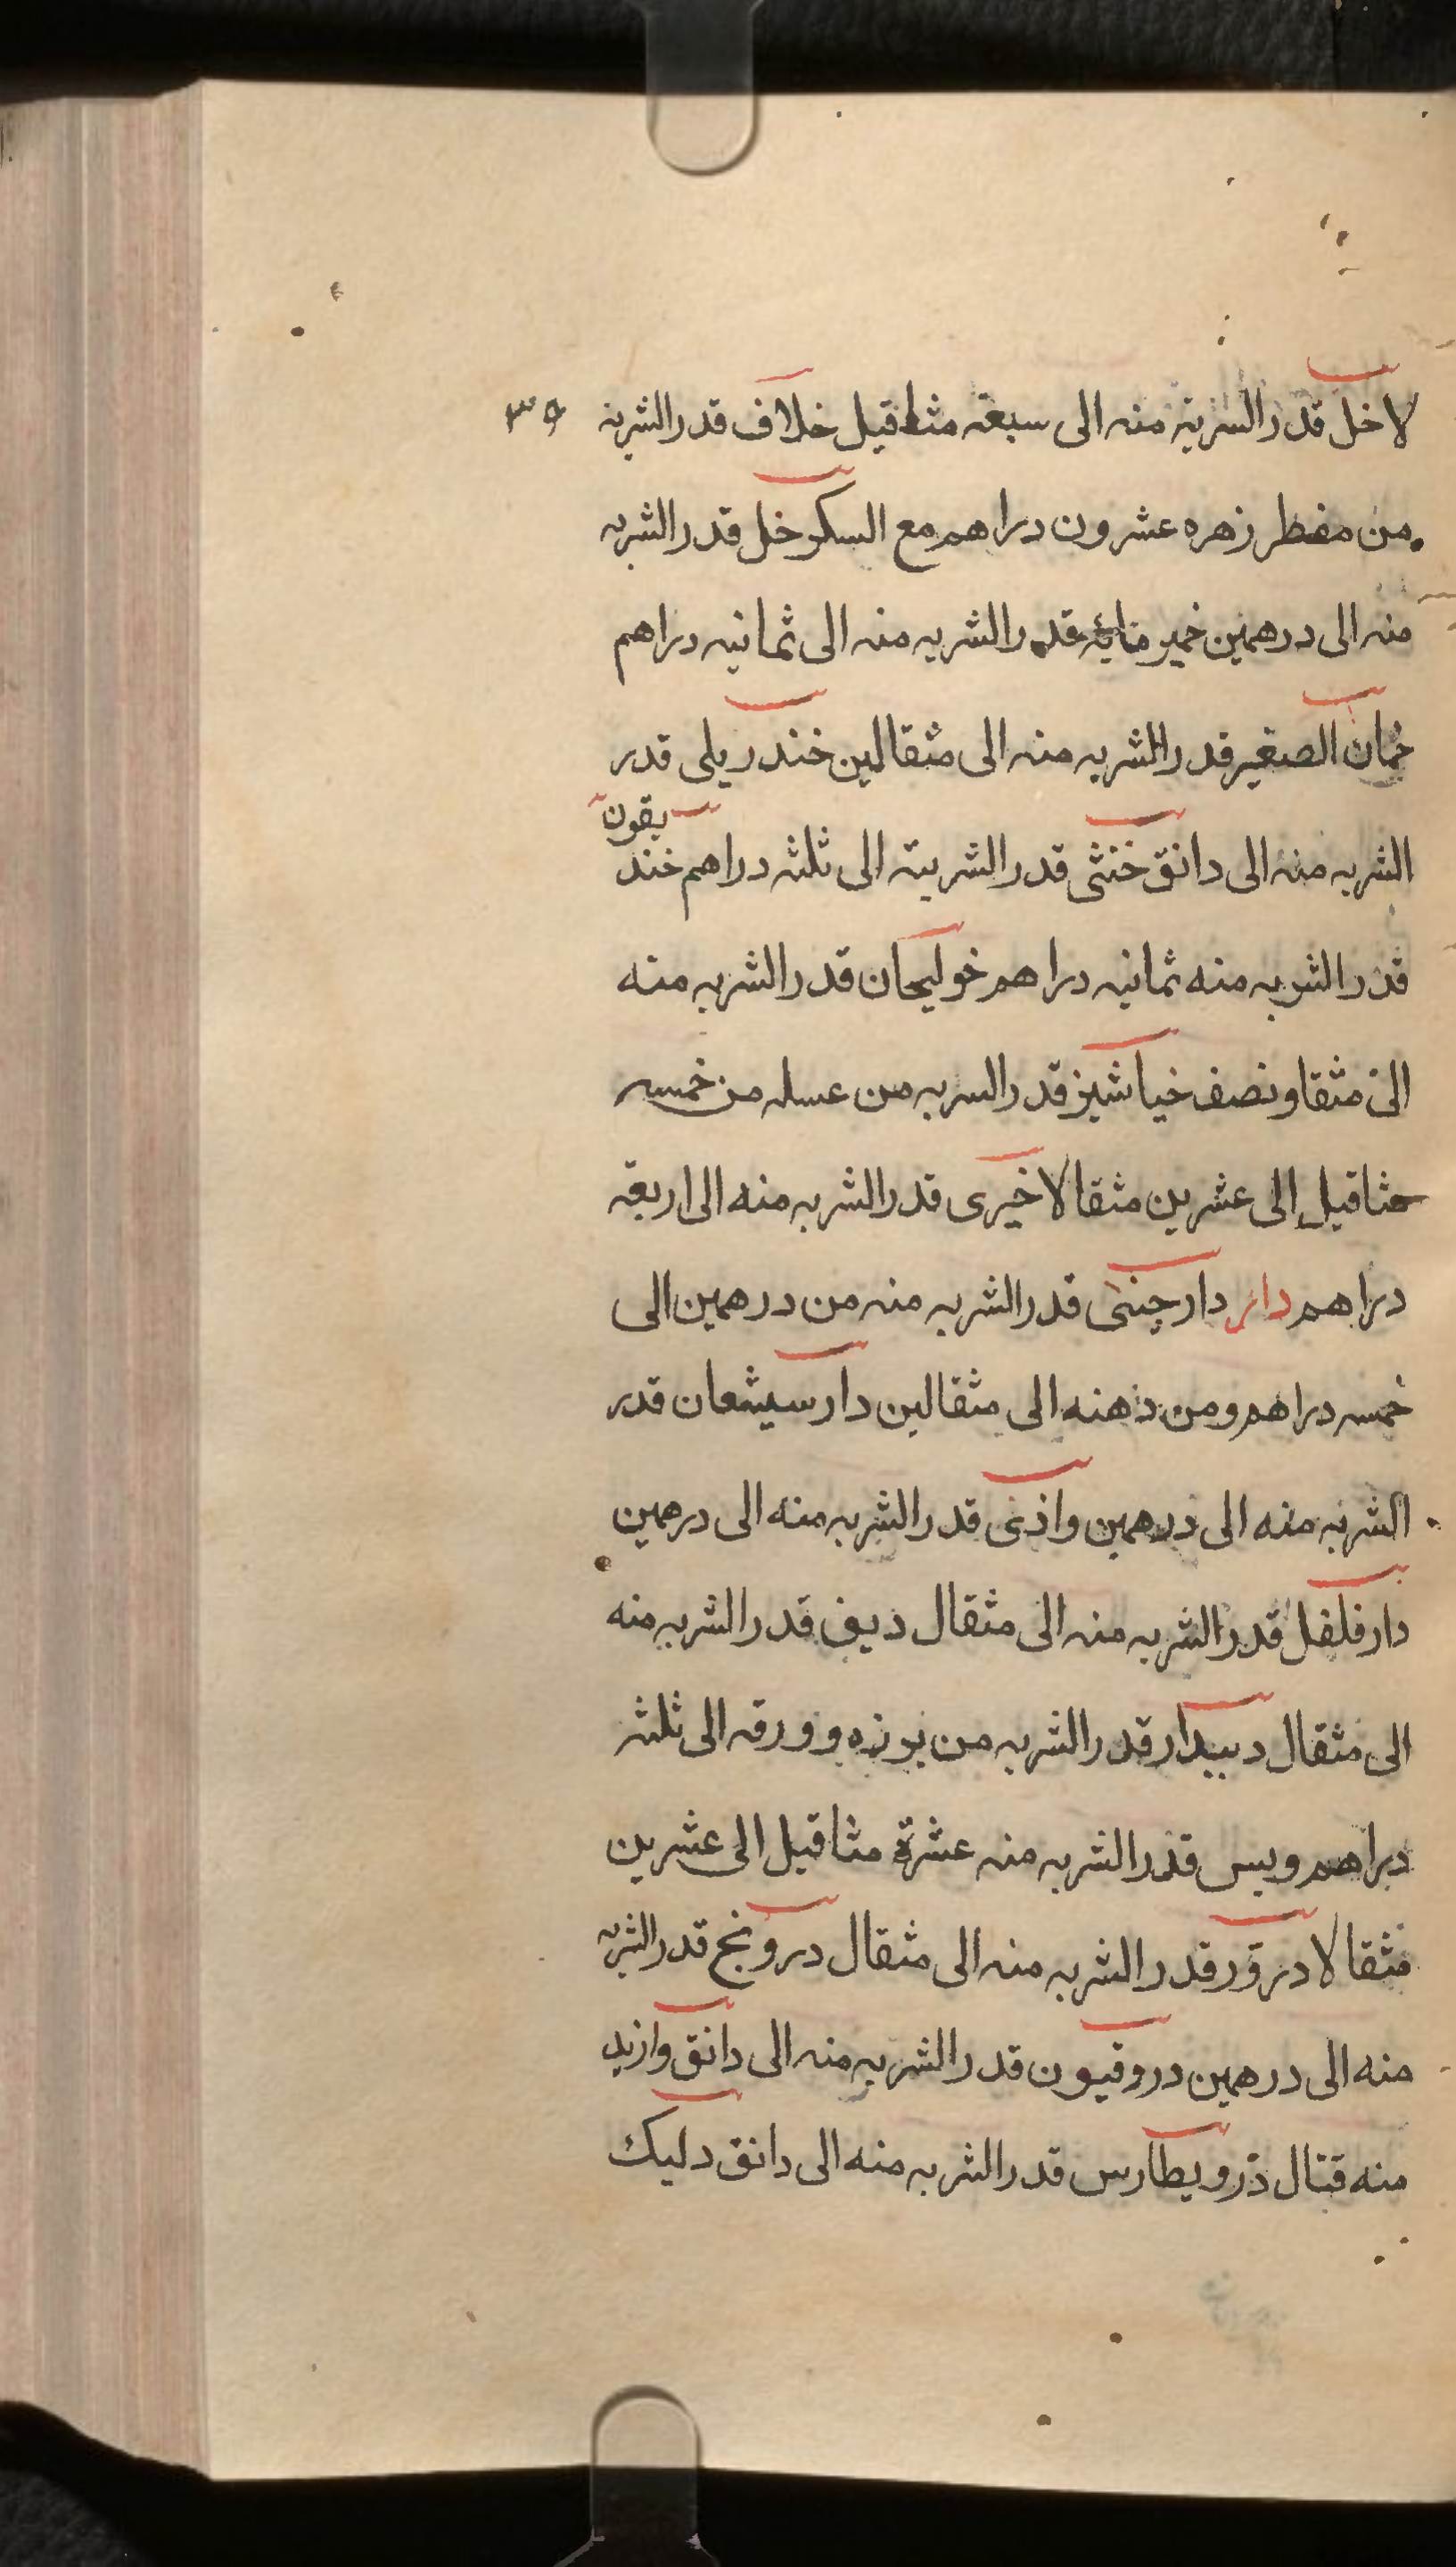 لاخل قدر الشربة منه الى سبعة مثاقيل خلاف قدر الشربة ٣٥
من مفطر زهره عشرون دراهم مع السكر خل قدر الشربه
منه الى درهمين خمير مايه قدر الشربه منه الى ثمانيه دراهم
خمان الصغير قدر الشربه منه الى مثقالين خندريلى قدر
الشربه منه الى دانق خنثى قدر الشربة الى ثلثه دراهم خند يقون
قدر الشربه منه ثمانيه دراهم خوليجان قدر الشربه منه
الى مثقا ونصف خياشيز قدر الشربه من عسله من خمسه
مثاقيل الى عشرين مثقالا خيرى قدر الشربه منه الى اربعة
دراهم دار دارچينى قدر الشربه منه من درهمين الى
خمسه دراهم ومن دهنه الى مثقالين دارسيشعان قدر
الشربه منه الى درهمين واذى قدر الشربه منه الى درهمين
دارفلفل قدر الشربه منه الى مثقال ديف قدر الشربه منه
الى مثقال دبيدار قدر الشربه من بوزه وورقه الى ثلثه
دراهم وبس قدر الشربه منه عشرة مثاقيل الى عشرين
مثقالا دروّر قدر الشربه منه الى مثقال درونج قدر الشربه
منه الى درهمين دروقيون قدر الشربه منه الى دانق وازيد
منه قتال دّرويطارس قدر الشربه منه الى دانق دليك